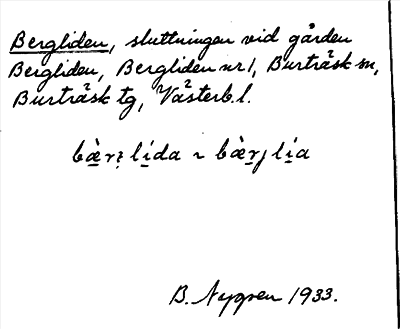 Bergliden, sluttningen vid gården
Bergliden, Bergliden nr 1, Burträsk sn,
Burträsk tg, Västerb. l.
bæ̀r̯ lída ~ bæ̀rj lía
B. Nygren 1933.